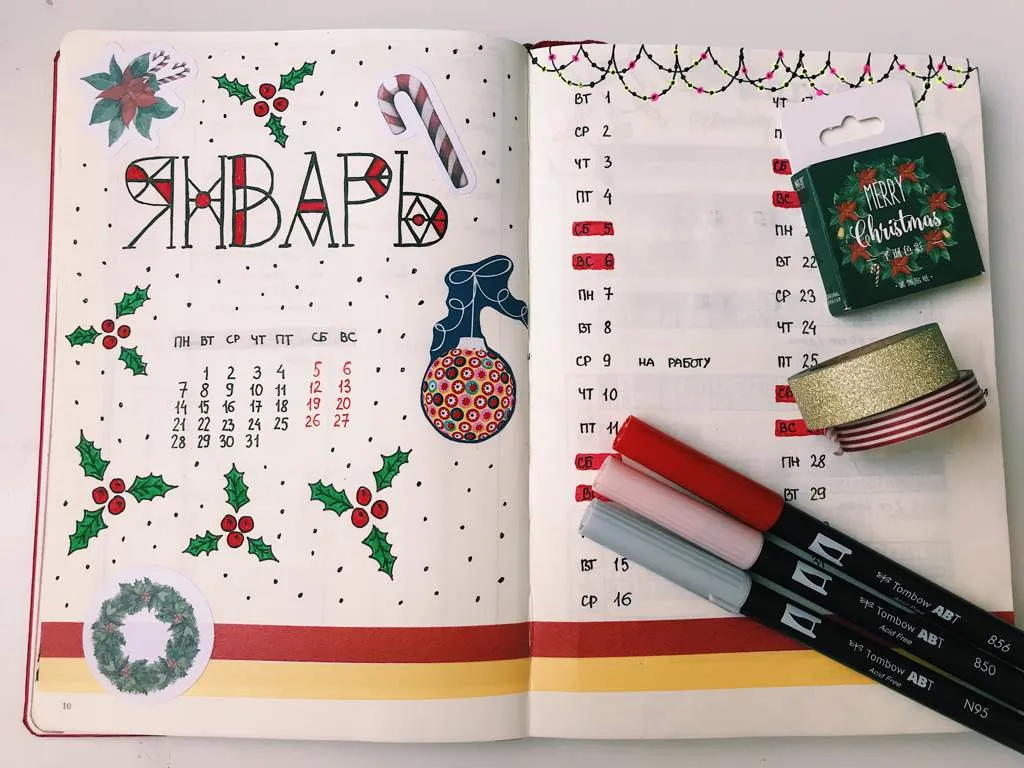 ЯНВАРЬ
ПН ВТ СР ЧТ ПТ СБ ВС
1 2 3 4 5 6
7 8 9 10 11 12 13
14 15 16 17 18 19 20
21 22 23 24 25 26 27
28 29 30 31
10
ВТ 1
СР 2
ЧТ 3
ПТ 4
СБ 5
ВС 6
ПН 7
ВТ 8
СР 9 НА РАБОТУ
ЧТ 10
ПТ 11
СБ
ВТ 15
СР 16
ЧТ
СБ
ВС
ПН
ВТ 22
СР 23
ЧТ 24
ПТ 25
ВС
ПН 28
ВТ 29
MERRY
Christmas
Tombow ABT
Acid Free
856
Tombow ABT
Acid Free
850
Tombow ABT
Acid Free
N95